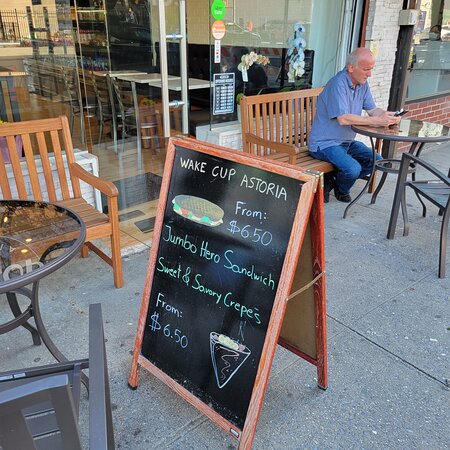 WAKE CUP ASTORIA
From:
$6.50
Jumbo Hero Sandwich
Sweet & Savory Crepe's
From:
$6.50